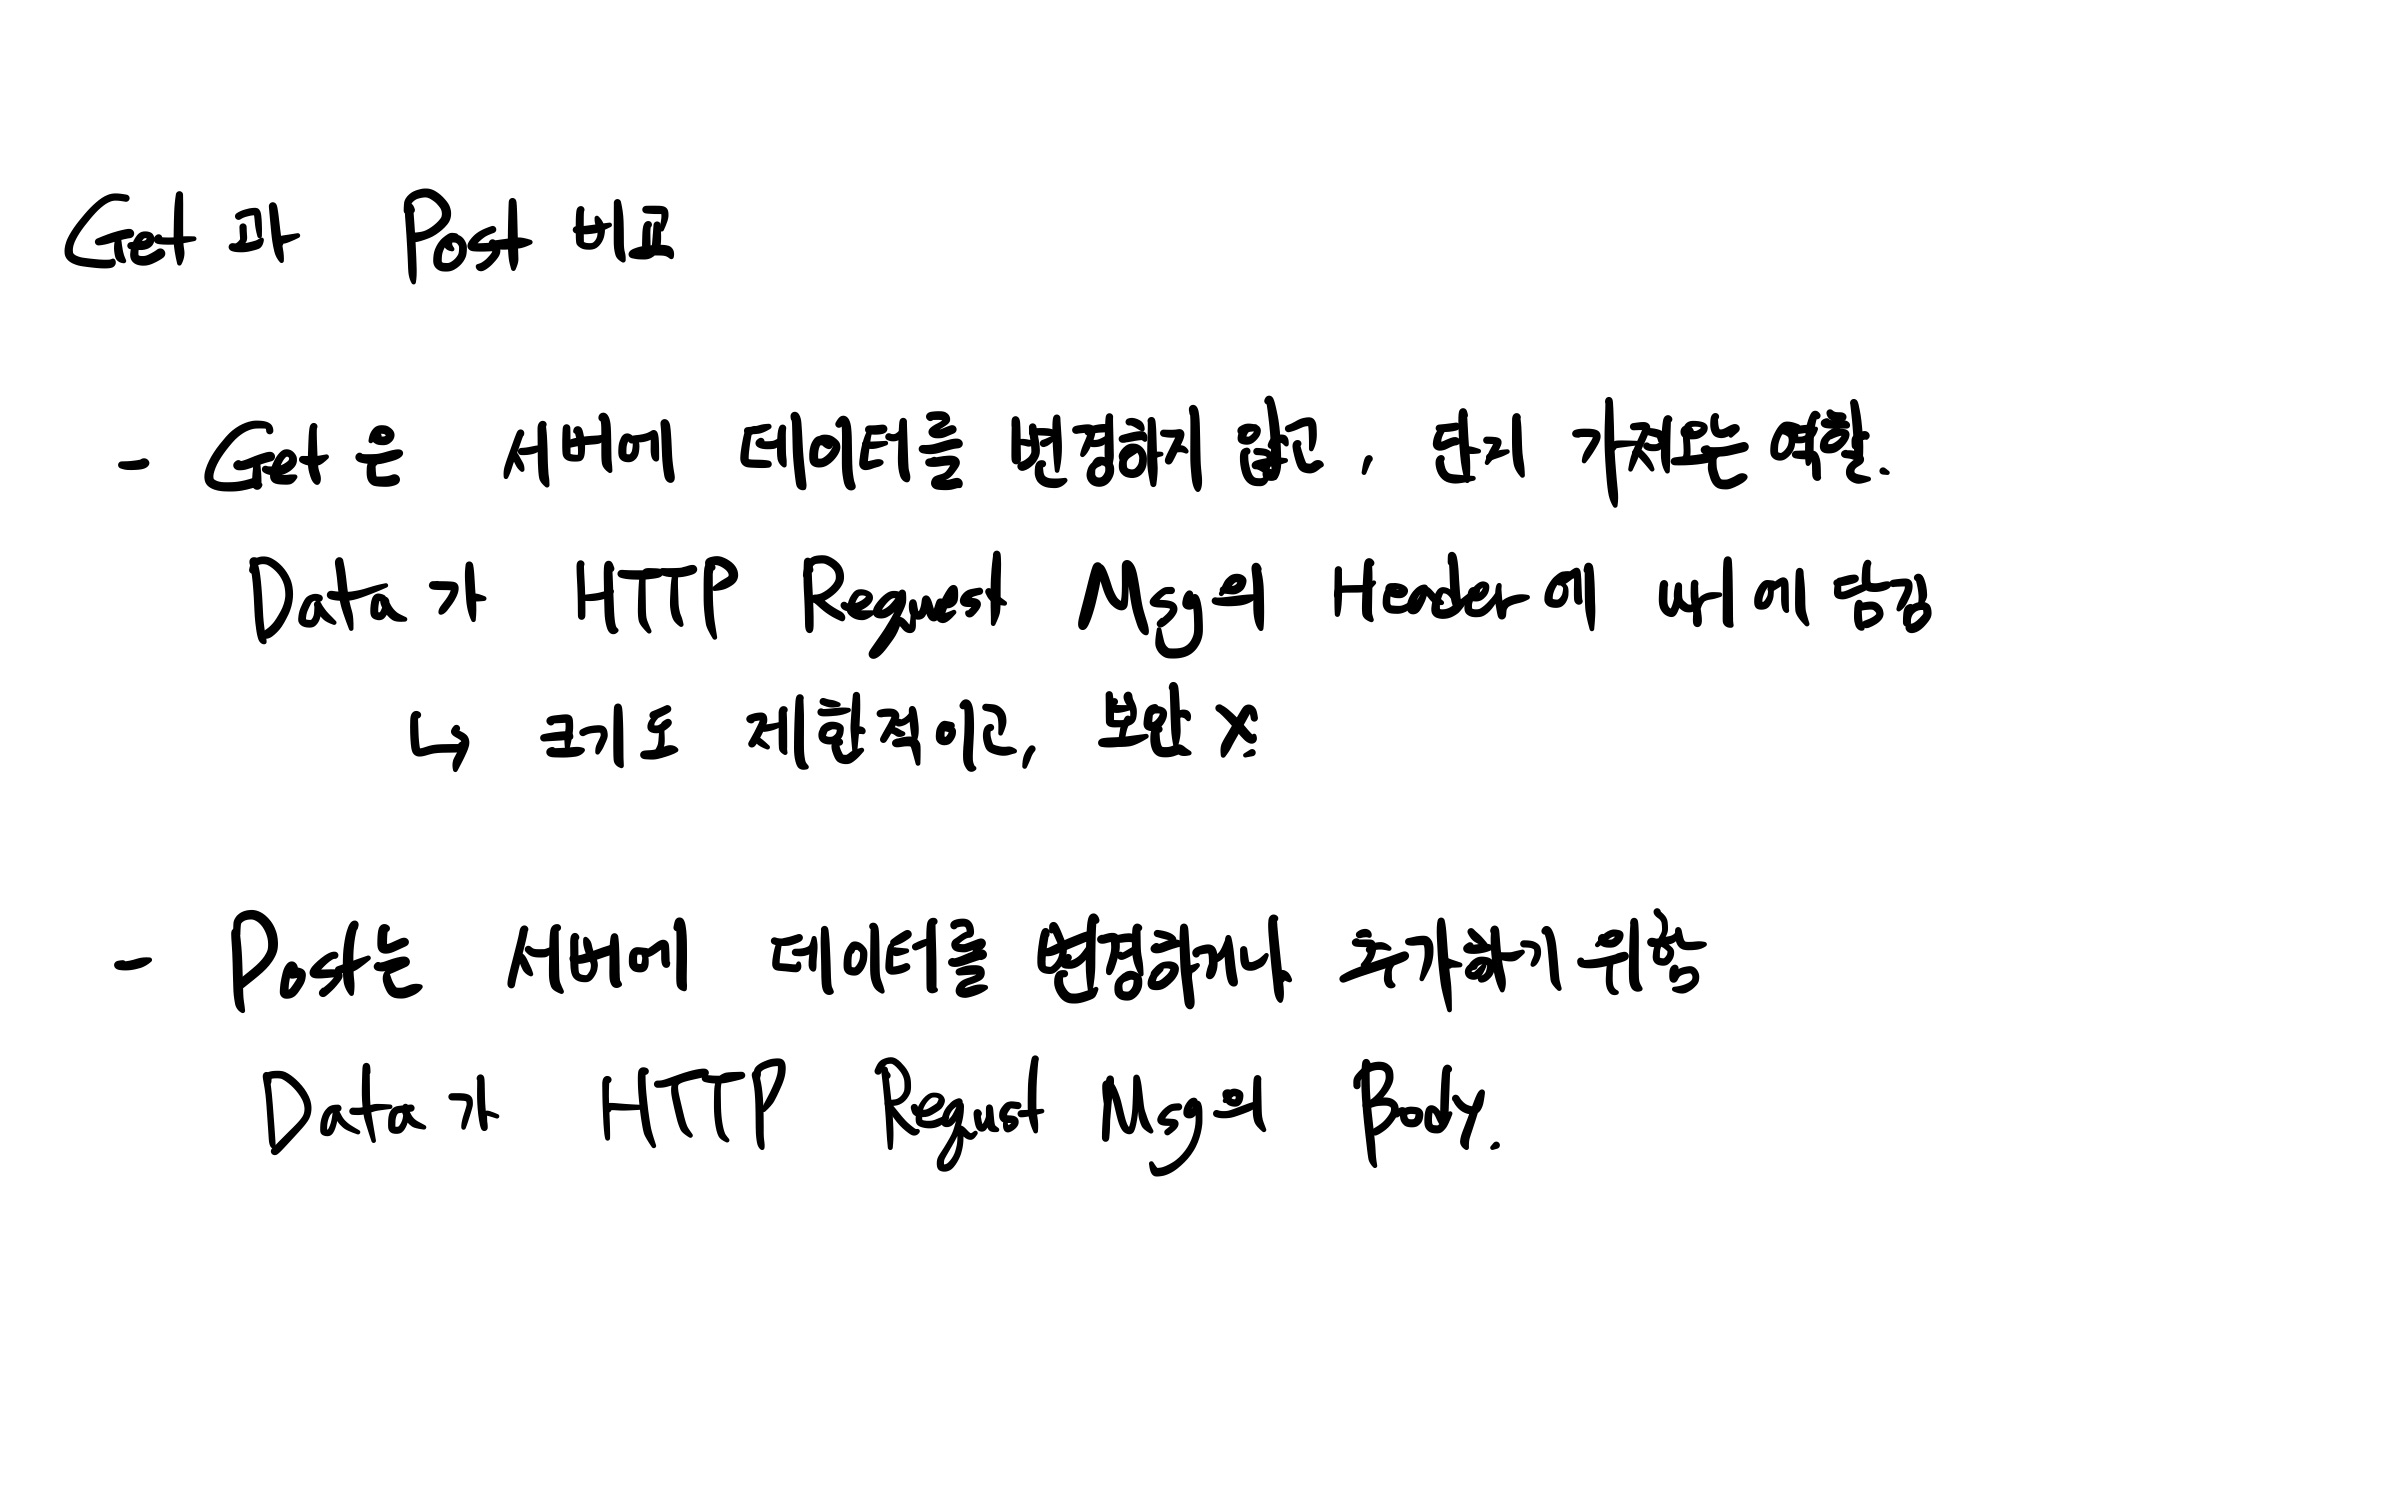 Get 과 Post 비교
- Get 은 서버의 데이터를 변경하지 않고, 단지 가져오는 역할.
Data가 HTTP Request Msg의 Header에 넣어 전송
↳ 크기도 제한적이고, 보안 X
- Post는 서버에 데이터를 변경하거나 추가하기 위함
Data가 HTTP Request Msg의 Body.